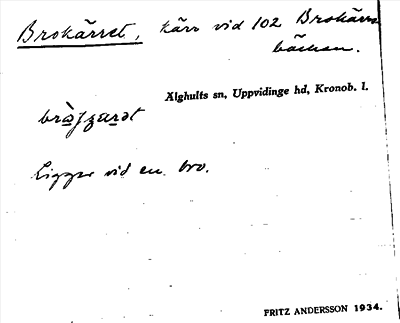 Brokärret, kärr vid 102 Brokärrs
bäcken.
Älghults sn, Uppvidinge hd, Kronob. l.
Ligger vid en bro.
FRITZ ANDERSSON 1934.